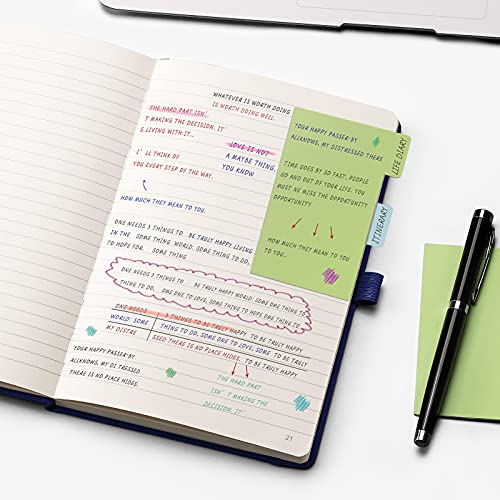 WHATEVER IS WORTH DOING
IS WORTH DOING WELL.
THE HARD PART ISN'
T MAKING THE DECISION. IT'
S LIVING WITH IT..
LOVE IS NOT
A MAYBE THING,
YOU KNOW
I' LL THINK OF
YOU EVERY STEP OF THE WAY.
HOW MUCH THEY MEAN TO YOU.
YOUR HAPPY PASSER-BY
ALLKNOWS, MY DISTRESSED THERE
TIME GOES BY SO FAST, PEOPLE
GO AND OUT OF YOUR LIFE. YOU
MUST NE MISS THE OPPORTUNITY
OPPORTUNITY
HOW MUCH THEY MEAN TO YOU
TO YOU..
LIFE DIARY
ITINERARY
ONE NEEDS 3 THINGS TO BE TRULY HAPPY LIVING
IN THE SOME THING WORLD: SOME THING TO DO,
TO HOPE FOR. SOME THING
ONE NEEDS 3 THINGS TO BE TRULY HAPPY WORLD: SOME ONE THING TO
THING TO DO, OME ONE TO LOVE, SOME THING TO HOPE ONE THING TO
ONE NEEDS 3 THINGS TO BE TRULY HAPPY TO BE TRULY HAPPY
WORLD: SOME THING TO DO, SOME ONE TO LOVE, SOME TO BE TRULY
MY DISTRE SSED THERE IS NO PLACE HIDES. TO BE TRULY HAPPY
YOUR HAPPY PASSER-BY
ALLKNOWS, MY DISTRESSED
THERE IS NO PLACE HIDES.
THE HARD PART
ISN' T MAKING THE
DECISION. IT
21